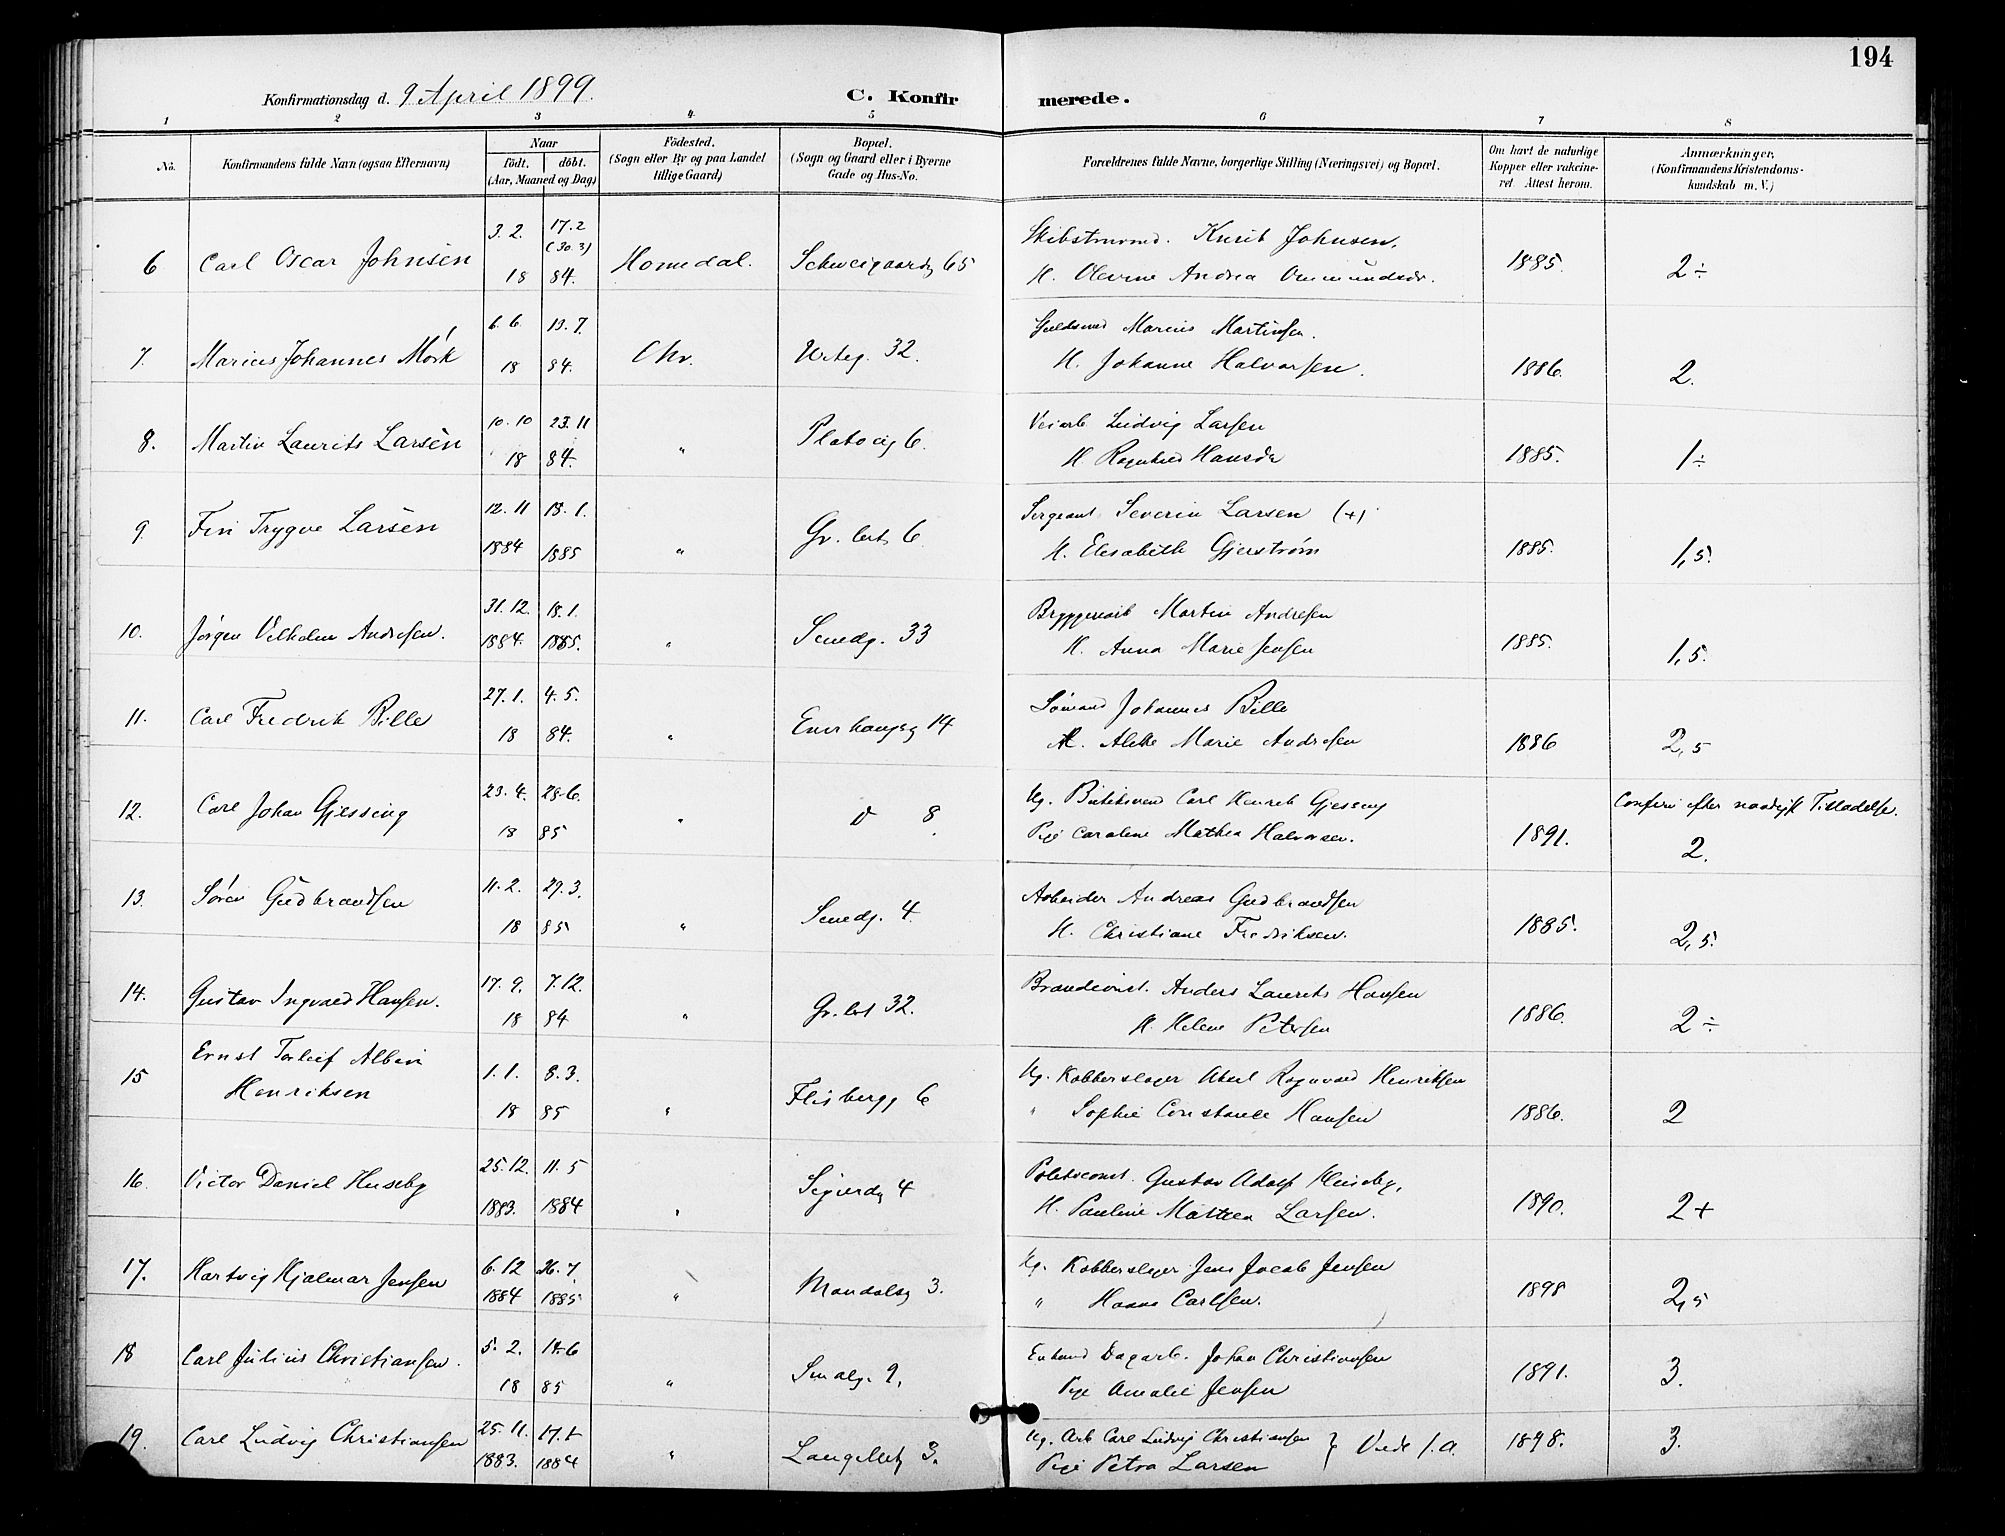 194
Konfirmationsdag d. 9 April 1899. C. Konfirmerede.
1 2 3 4 5 6 7 8
No. Konfirmandens fulde Navn (ogsaa Efternavn) Naar født. døbt. (Aar, Maaned og Dag) Fødested. (Sogn eller By og paa Landet tillige Gaard) Bopæl. (Sogn og Gaard eller i Byerne Gade og Hus-No. Forældrenes fulde Navne, borgerlige Stilling (Næringsvei) og Bopæl. Om havt de naturlige Kopper eller vakcineret. Attest herom. Anmærkninger. (Konfirmandens Kristendomskundskab m. V.)
3. 2. 17. 2 (30. 3) Knut Johnsen.
6 Carl Oscar Johnsen 18 84. Homedal. Schweigaardsg 65 H. Olevine Andrea Ommundsdr. 1885. 2÷
6. 6. 13. 7. Guldsmed Marius Martinsen.
7. Marius Johannes Mørk 18 84. Chr. Urteg. 32. H. Johanne Halvorsen. 1886. 2.
10. 10 23. 11 Veiarb Ludvig Larsen
8. Martin Laurits Larsen 18 84. " Platoug 6. H. Ragnhild Hansdr 1885. 1÷
12. 11 13. 1. Sergeant Severin Larsen (+)
9. Fin Trygve Larsen 1884 1885 " Gr. lert 6. H. Elisabeth Gjerstrøm 1885. 1,5.
31. 12. 18. 1. Bryggeriarb Martin Andresen
10. Jørgen Vilhelm Andresen. 1884. 1885. " Smedg. 33 H. Anna Marie Jensen 1885. 1,5.
27. 1. 4. 5. Sømand Johannes Bille
11. Carl Fredrik Bille 18 84. " Enerhaugsg 14 H. Alette Marie Andresen 1886 2,5
23. 4. 28. 6. Ug. Carl Henrik Gjessing Confir. efter naadigst Tilladelse.
12. Carl Johan Gjessing 18 85 " d 8. Pige Caroline Mathea Halvorsen. 1891. 2.
11. 2. 29. 3. Arbeider Andreas Gudbrandsen
13. Søren Gudbrandsen 18 85 " Smedg. 4. H. Christiane Fredriksen. 1885. 2,5.
17. 9. 7. 12. Brandconst. Anders Laurits Hansen
14. Gustav Ingvald Hansen. 18 84 " Gr. lert 32. H. Helene Petersen 1886. 2÷
Ernst Torleif Albin 1. 1. 8. 3. Ug. Kobberslager Aksel Ragnvald Henriksen
15 Henriksen 18 85 " Flisbergg 6 " Sophie Constance Hansen 1886. 2
25. 12. 11. 5 Politiconst. Gustav Adolf Huseby,
16. Victor Daniel Huseby 1883. 1884 " Sigurdsg 4 H. Pauline Mathea Larsen. 1890. 2+
6. 12 26. 7 Ug. Kobberslager Jens Jacob Jensen
17. Hartvig Hjalmar Jensen 1884 1885 " Mandalsg 3. " Hanna Carlsen. 1898 2,5
5. 2. 14. 6 Enkemd Dagarb. Johan Christiansen
18 Carl Julius Christiansen. 18 85 " Smalg. 9. Pige Amalie Jensen 1891. 3.
25. 11. 17. 1 Ug. Arb Carl Ludvig Christiansen
19. Carl Ludvig Christiansen 1883. 1884 " 3. Pige Petra Larsen } Viede s. a. 1898. 3.